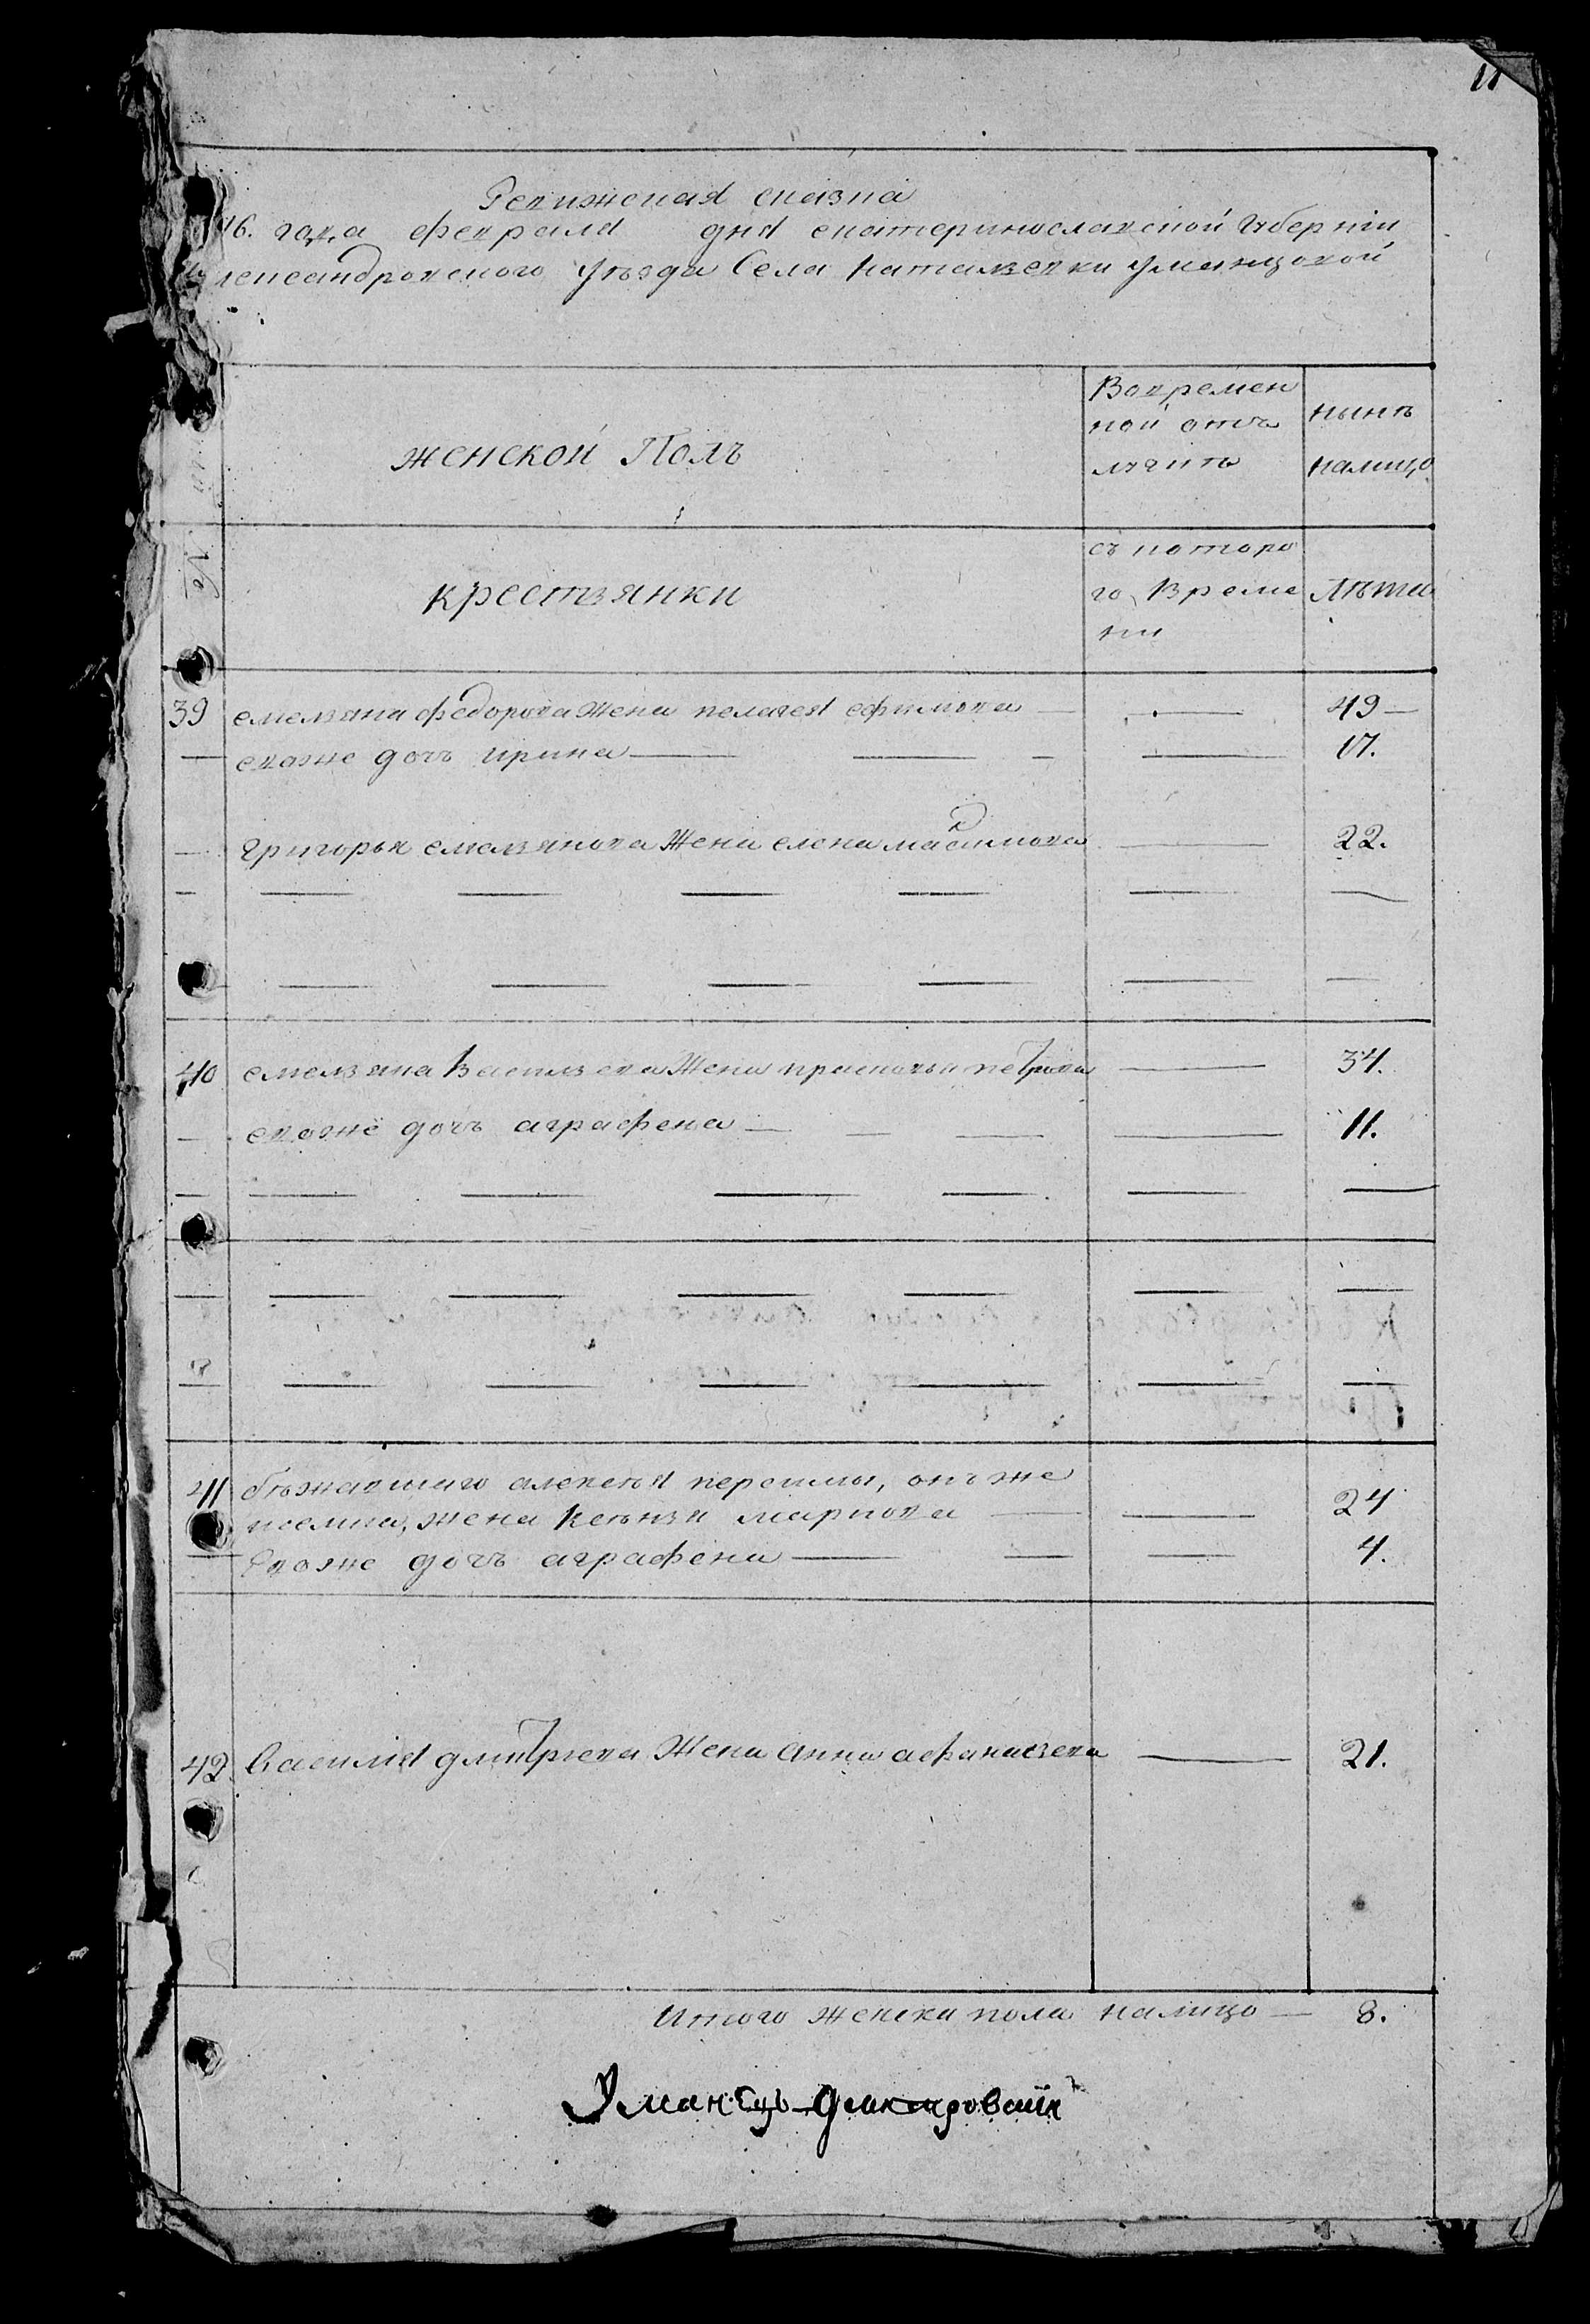 11
Ревижская сказка
16. года февраля дня екатеринославской Губернiи
лександровского Уезда Села Натальевки Уманцовой
женской Полъ
Вовремен
ной отъ
лучить
нынѣ
налицо
№
крестьянки
съ которо
го Време
ни
Лѣта
39 емельяна федорова Жена пелагея ефимова — — 49 —
— евоже дочь ирина — — — — 17.
— григорья емельянова Жена елена максимова — 22.
— — — — — — —
— — — — — —
40 емельяна Васильева Жена прасковья петрова — 34.
— евоже дочь аграфена — — — — 11.
— — — — — — —
— — — — — — —
— — — — — — —
41 бѣжавшаго алексея , онъ же
жена Ксенья маркова — — 24
— Евоже дочь аграфена — — — 4.
42 Василья дмитриева Жена анна афанасьева — 21.
Итого женска пола налицо — 8.
Уманецъ-